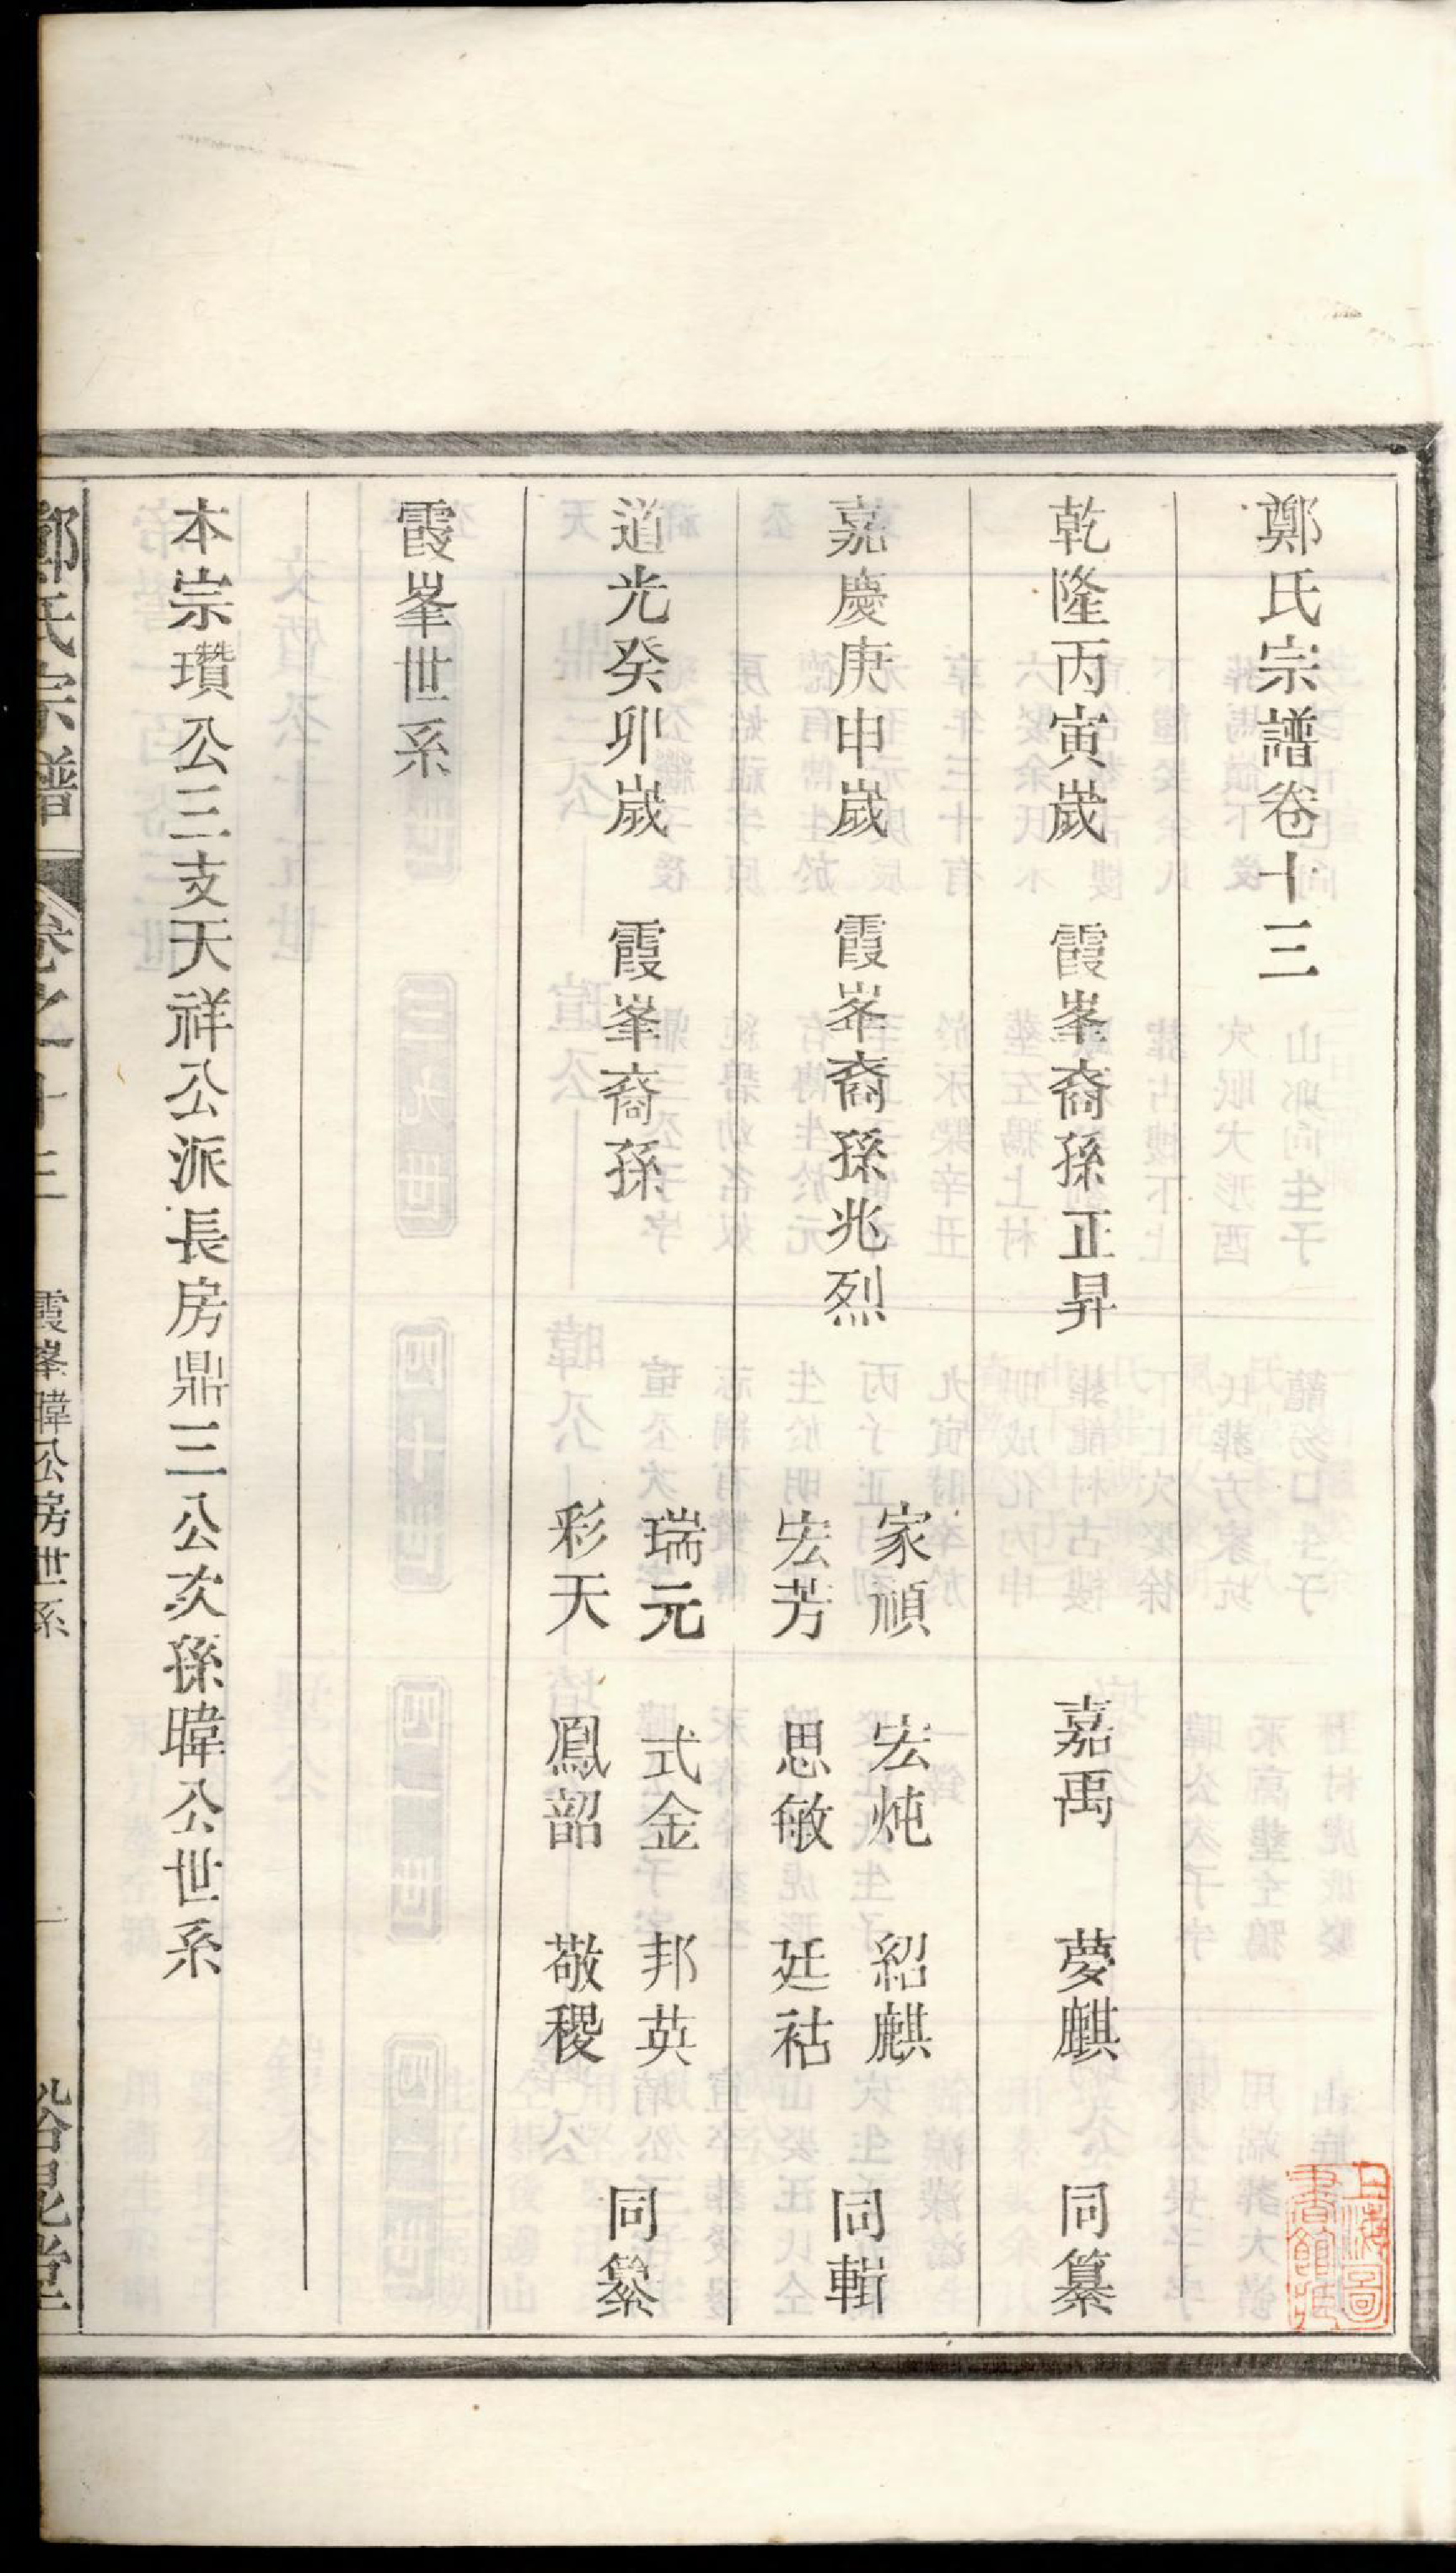 鄭氏宗譜卷十三
乾隆丙寅歲 霞峯裔孫正昇 嘉禹 夢麒 同纂
嘉慶庚申歲 霞峯裔孫兆烈 家禎 宏炖 紹麒 同輯
宏芳 思敏 廷祜
道光癸卯歲 霞峯裔孫 瑞元 式金 邦英 同纂
彩天 鳳韶 敬稷
霞峯世系
本宗瓚公三支天祥公派長房鼎三公次孫暐公世系
鄭氏宗譜 卷之十三 霞峯暐公房世系 一
上海圖書館藏